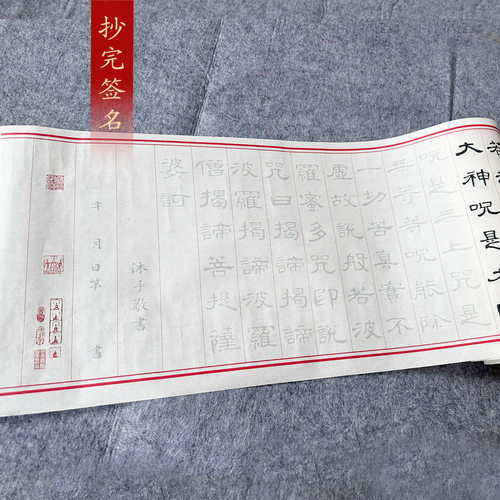 抄完签名
大神呪是大
呪是無上呪是
無等等呪能除
一切苦真實不
虛故說般若波
羅蜜多咒即說
咒曰揭諦揭諦
波羅揭諦波羅
僧揭諦菩提薩
婆訶
沐手敬書
年 月 日第 書